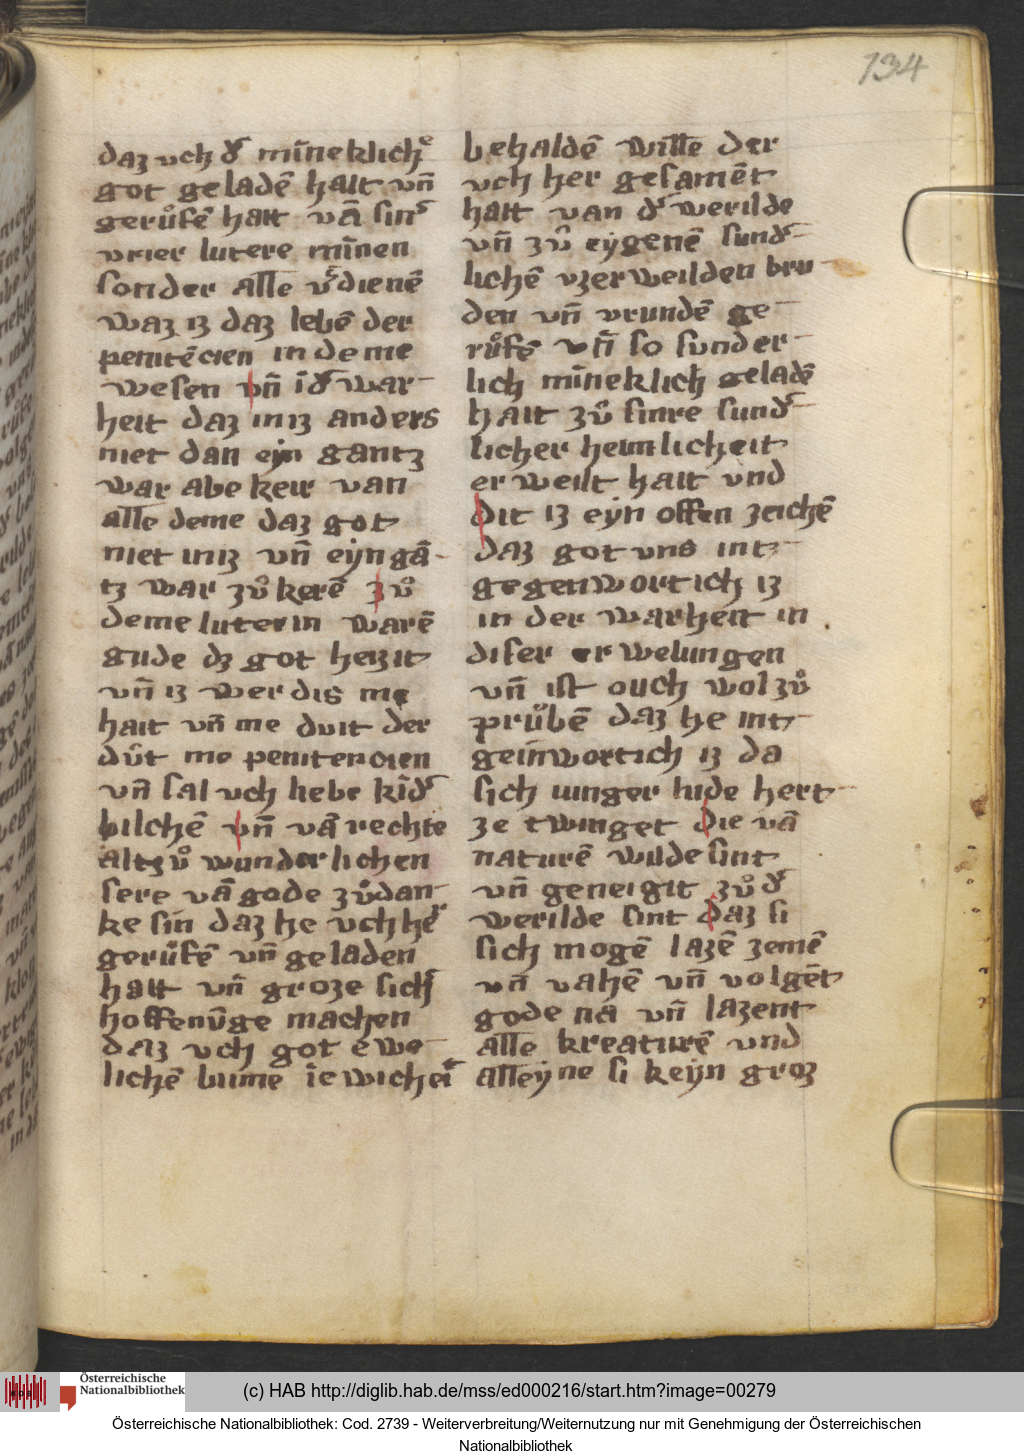 134
daz vch dˢ mīneklichˢ
got geladē hait vn̄
geruͦfē hait vā sinˢ
vrier lutere mīnen
sonder alle vˢdienē
waz iz daz lebē der
penitēcien in deme
wesen vn̄ īdˢ war-
heit daz in iz anders
niet dan eyn gantz
war abekeir van
alle deme daz got
niet in iz vn̄ eyn gā-
tz war zuͦ kerē zuͦ
deme luterin warē
gude dz got heizit
vn̄ iz wer dis me
hait vn̄ me duit der
duͦt me penitencien
vn̄ sal vch liebe kīdˢ
bilchē vn̄ vā rechte
altzuͦ wunderlichen
sere vā gode zuͦdan-
ke sin daz he vch heˢ
geruͦfē vn̄ geladen
hait vn̄ groze sichˢ
hoffenūge machen
daz vch got ewe-
lichē bume īewichei
behaldē wille der
vch her gesamēt
hait van dˢ werilde
vn̄ zuͦ eygenē sundˢ-
lichē vzerweilden bru-
den vn̄ vrundē ge-
ruͦfē vn̄ so sunder-
lich mīneklich geladē
hait zuͦ sinre sundˢ-
licher heimlicheit
er weilt hait vnd
dit iz eyn offen zeichē
daz got vns int-
gegenwortich iz
in der warheit in
diser erwelungen
vn̄ ist ouch wol zuͦ
pruͦbē daz he int-
geinwortich iz da
sich iunger lude hert-
ze twinget die vā
naturē wilde sint
vn̄ geneigit zuͦ dˢ
werilde sint daz si
sich mogē lazē zemē
vn̄ vahē vn̄ volgēt
gode na vn̄ lazent
alle kreaturē vnd
alleyne si keyn groz
Österreichische
Nationalbibliothek
(c) HAB http://diglib.hab.de/mss/ed000216/start.htm?image=00279
Österreichische Nationalbibliothek: Cod. 2739 - Weiterverbreitung/Weiternutzung nur mit Genehmigung der Österreichischen
Nationalbibliothek